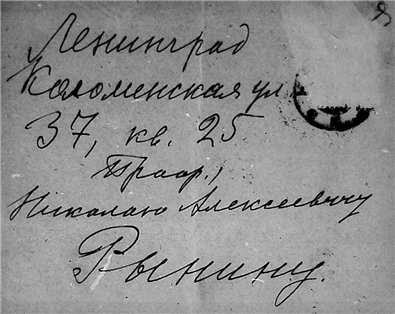 Ленинград
Коломенская ул
37, кв. 25.
Николаю Алексеевичу
Рынину.